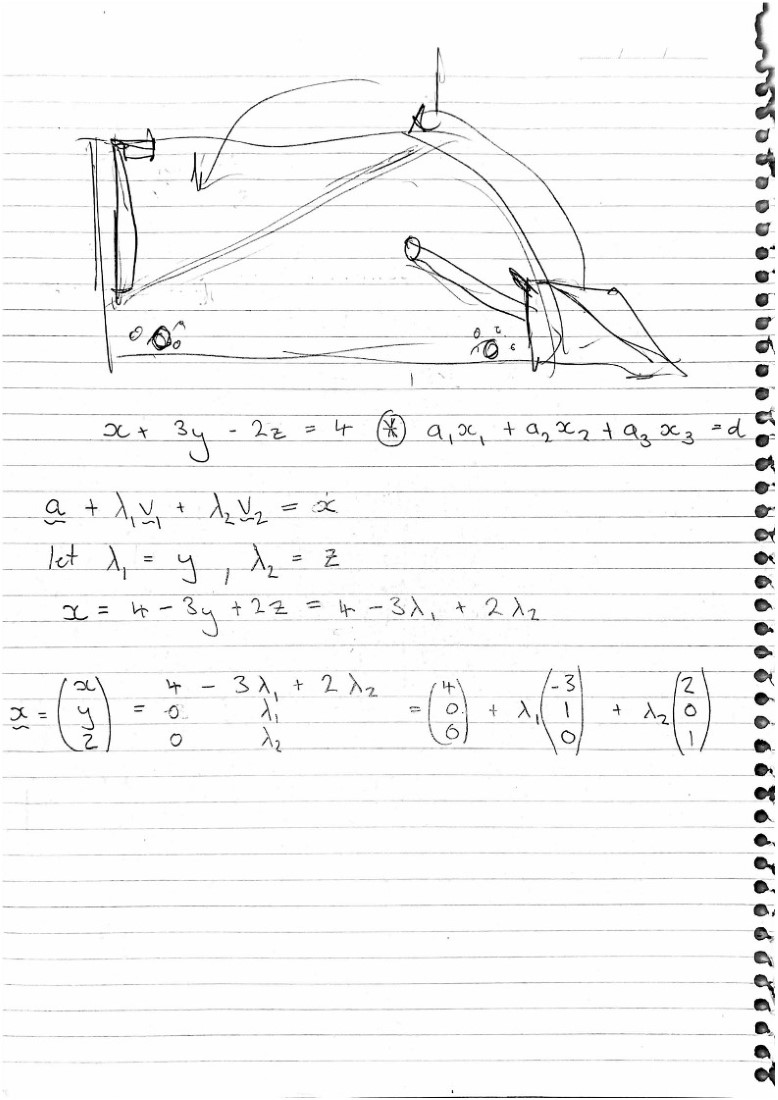 x + 3y - 2z = 4 (*) a₁x₁ + a₂x₂ + a₃x₃ = d
a + λ₁v₁ + λ₂v₂ = x
let λ₁ = y , λ₂ = z
x = 4 - 3y + 2z = 4 - 3λ₁ + 2λ₂
x = (x y z) = 4 - 3λ₁ + 2λ₂ 0 λ₁ 0 λ₂ = (4 0 0) + λ₁ (-3 1 0) + λ₂ (2 0 1)